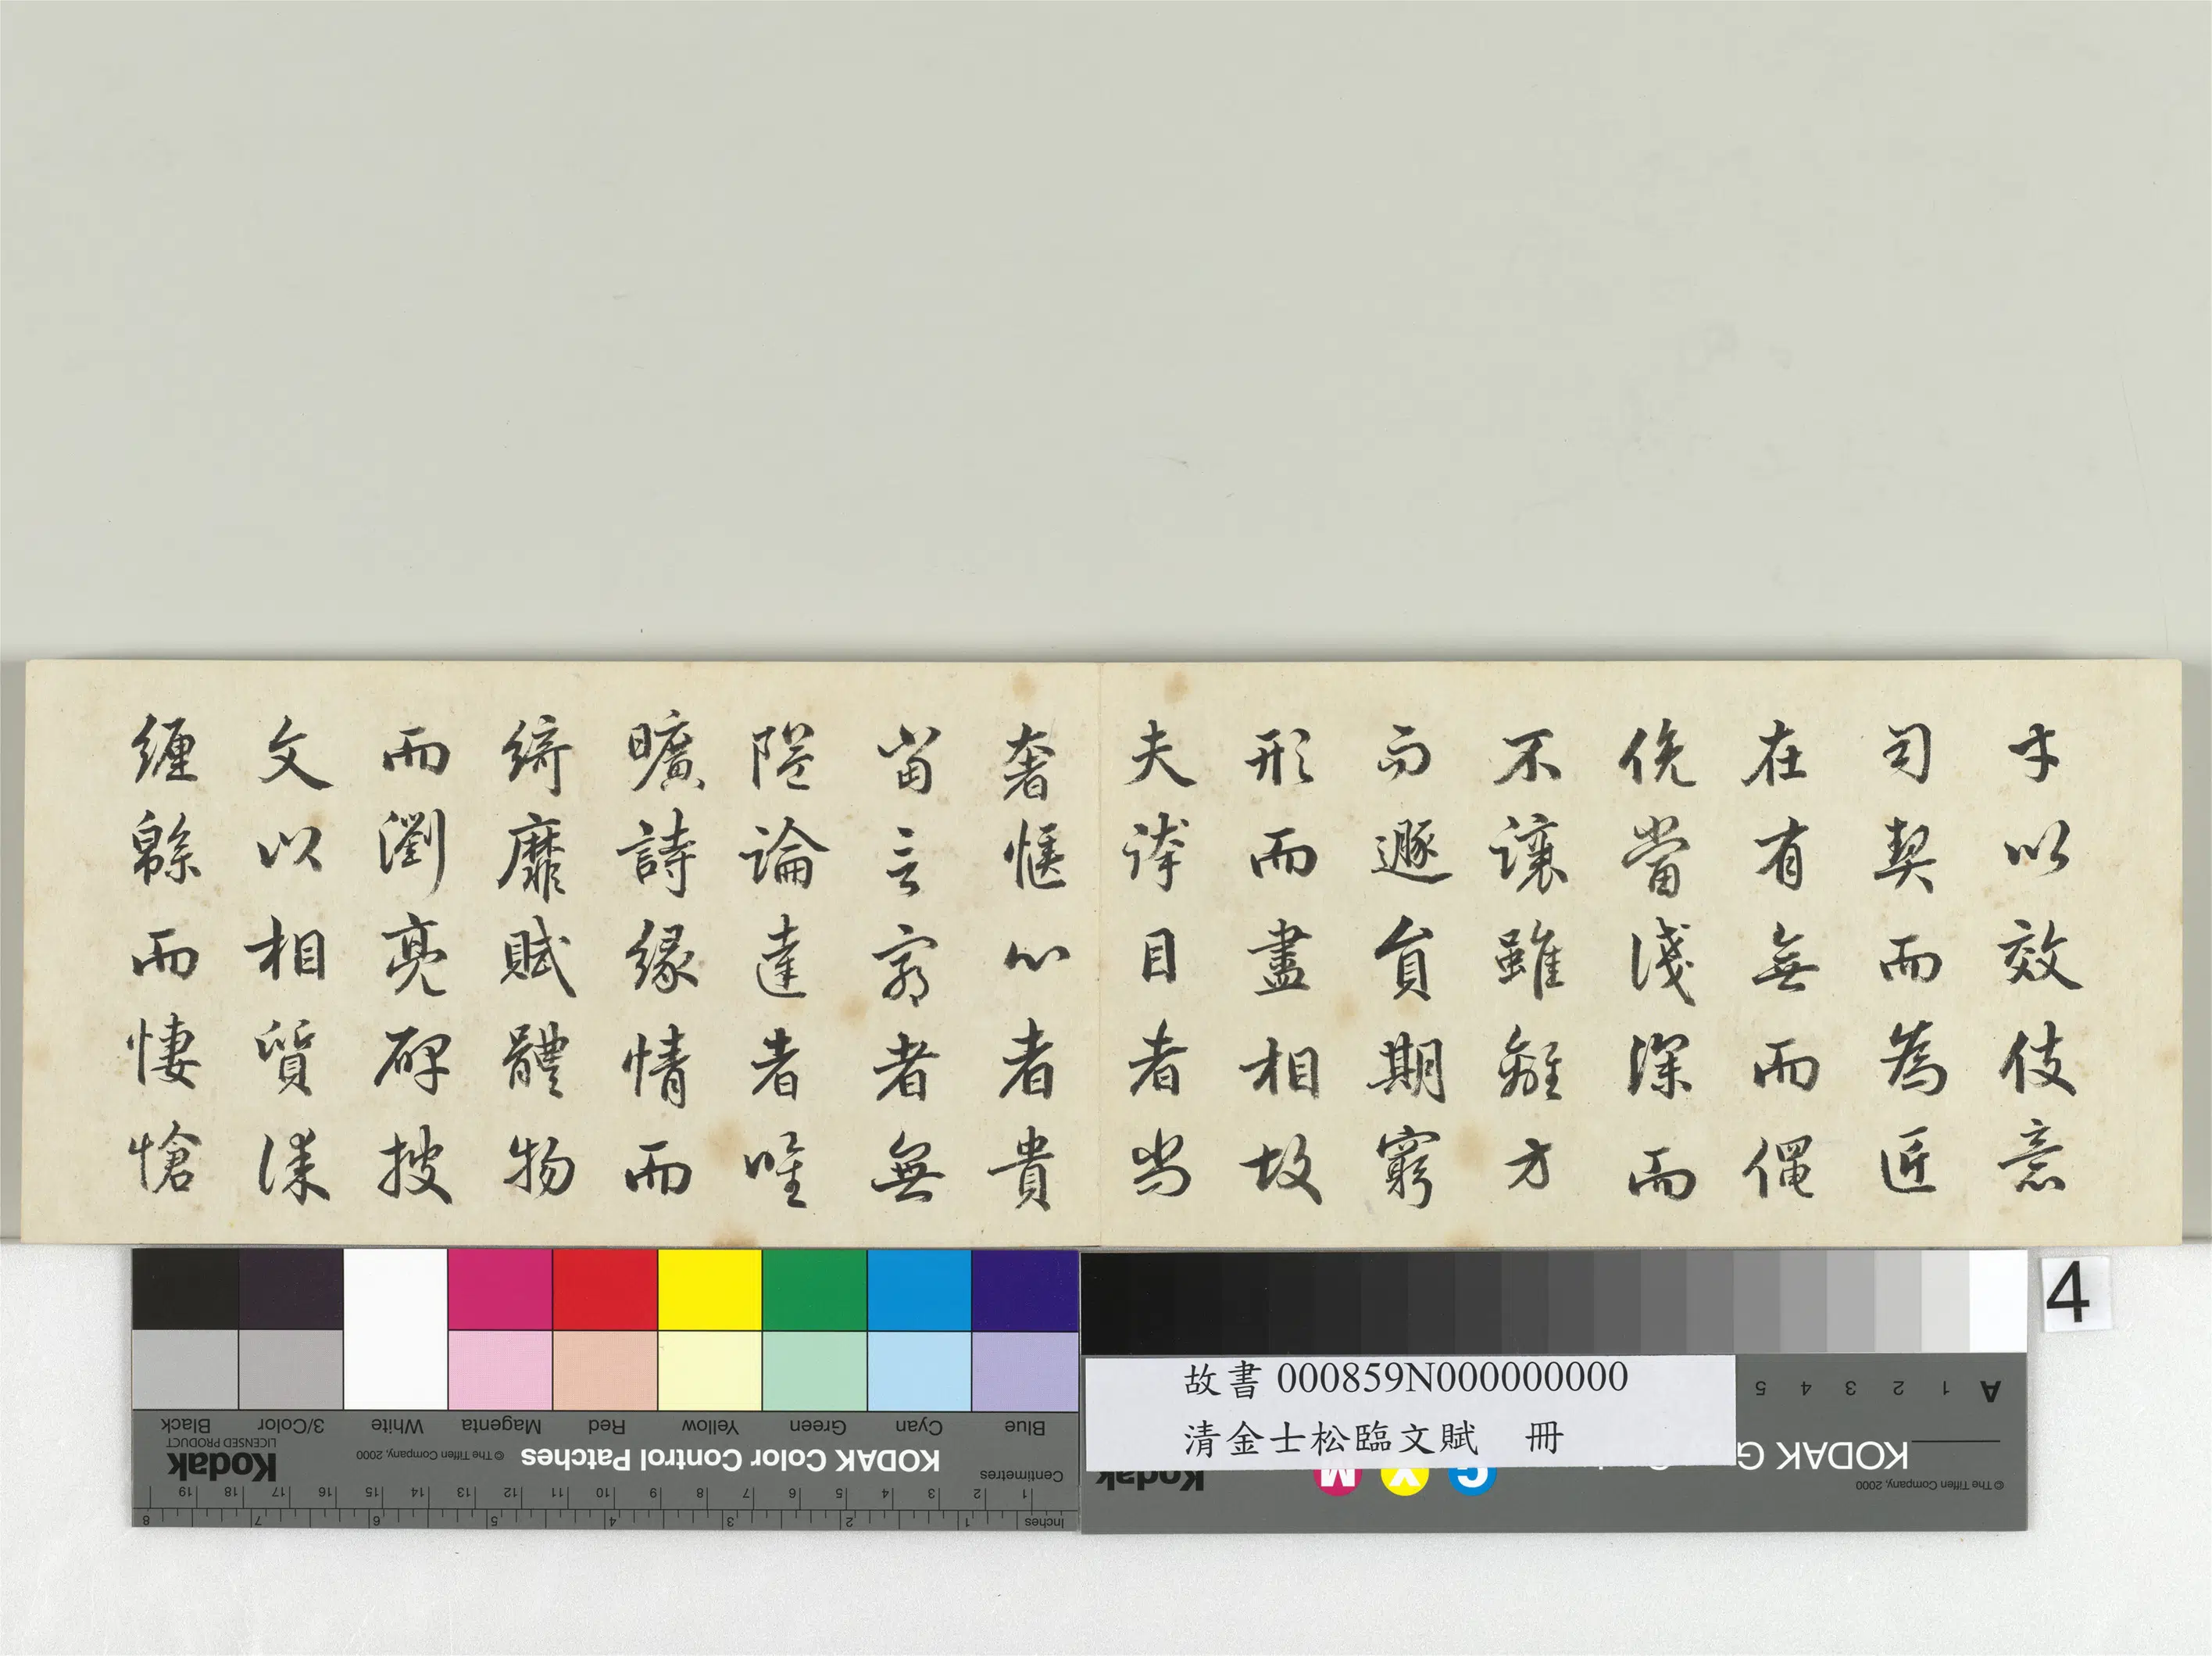 才以效伎意
司契而為匠
在有無而僶
俛當淺深而
不讓雖離方
而遯員期窮
形而盡相故
夫誇目者尚
奢愜心者貴
當言窮者無
隘論達者唯
曠詩緣情而
綺靡賦體物
而瀏亮碑披
文以相質誄
纏緜而悽愴
4
故書 000859N000000000
清金士松臨文賦 冊
Blue Cyan Green Yellow Red Magenta White 3/Color Black
KODAK Color Control Patches © The Tiffen Company, 2000 Kodak LICENSED PRODUCT
Centimetres 1 2 3 4 5 6 7 8 9 10 11 12 13 14 15 16 17 18 19
Inches 1 2 3 4 5 6 7 8
A 1 2 3 4 5
KODAK G
© The Tiffen Company, 2000
C Y M Kodak